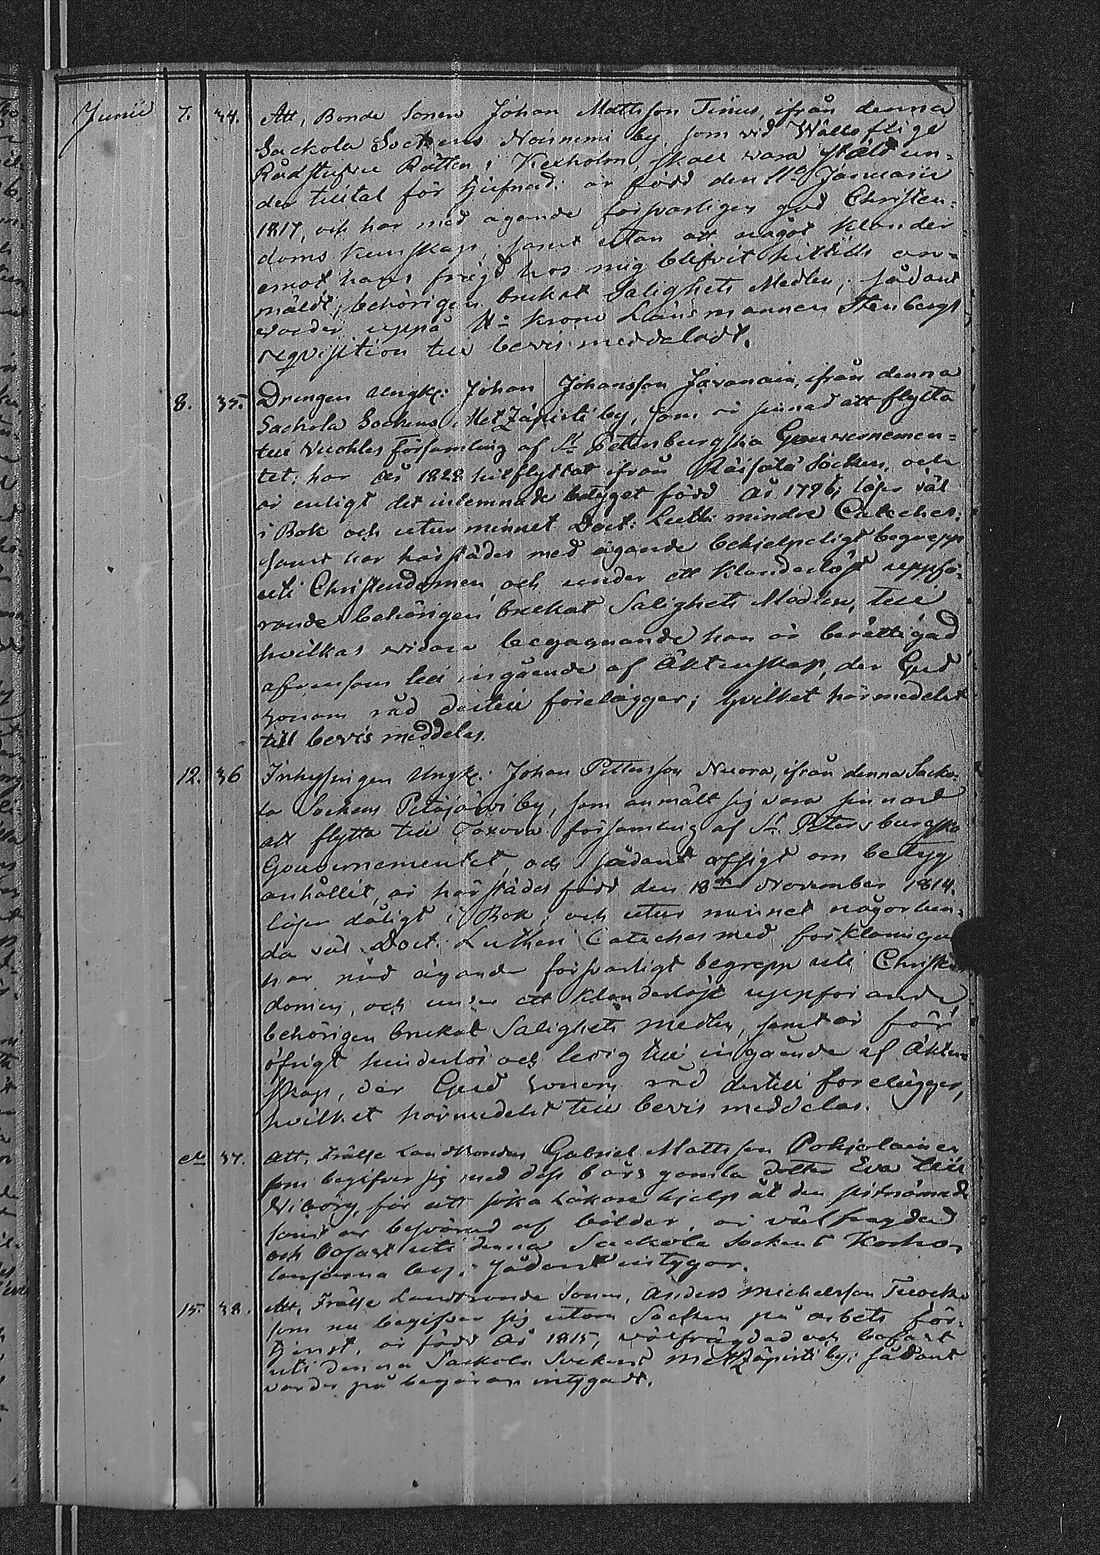 Junii 7. 34. Att, Bonde Sonen Johan Mattsson Tenus, ifrån denna
Sackola Sockens Noisnemi by som vid Wälloflige
Rådstufvu Rätten i Kexholm skall vara ställd un-
der tilltal för tjufnad: är född den 11te Januarii
1817, och har med ägande försvarligen god Christen-
doms kunskap samt utan att något klander
emot hans frägd hos mig blifvit hittills an-
mäldt, behörigen brukat Salighets Medlen, sådant
varder uppå Hr Krono Länsmannen Stenbergs
requisition till bevis meddeladt.
8. 35. Drengen Ungk: Johan Johansson Jävanain, ifrån denna
Sackola Sockens Metzäpirti by, som är sinnad att flytta
till Wuohles Församling af St Petersburgska Gouvernemen-
tet, har år 1828 hitflyttat ifrån Räisälä Socken, och
är enligt det inlemnade betyget född år 1796, läser väl
i Bok och utur minnet Doct: Luth: mindre Cateches:
samt har härstädes med ägande behjelpeligt begrepp
uti Christendomen, och under ett klanderlöst uppfö-
rande behörigen brukat Salighets Medlen, till
hvilkas vidare begagnande han är berättigad
äfvensom till ingående af Äktenskap, der Gud
honom råd dertill förelägger; hvilket härmedelst
till bevis meddelas.
12. 36 Inhysingen Ungk: Johan Pettersson Nuora, ifrån denna Sacko-
la Sockens Petäjärvi by, som anmält sig vara sinnad
att flytta till Toxova församling af St Petersburgska
Gouvernementet och sådant afsigt om betyg
anhållit, är härstädes född den 18de November 1814.
läser dåligt i Bok, och utur minnet någorlun-
da väl Doct: Lutheri Cateches med förklaringar
har med ägande försvarligt begrepp uti Christen-
domen, och under ett klanderlöst uppförande
behörigen brukat Salighets medlen, samt är för
öfrigt hinderlös och ledig till ingående af Äkten-
skap, der Gud honom råd dertill förelägger,
hvilket härmedelst till bevis meddelas.
37. Att, Frälse Landbonden Gabriel Mattsson Pohjolainen
som begifver sig med dess 6 års gamla dotter Eva till
Wiborg, för att söka Läkare hjelp åt den sistnämnde
som är besvärad af bölder, är välfrägdad
och bofast uti denna Sackola Sockens Kosko-
lansaima by: sådant intygar.
15. 38. Att, Frälse Landbonde Sonen, Anders Michelsson
som nu begifver sig utom Socken på arbets för-
tjenst, är född år 1815, välfrägdad och bofast
uti denna Sackola Sockens Metzäpirti by: sådant
varder på begäran intygadt.